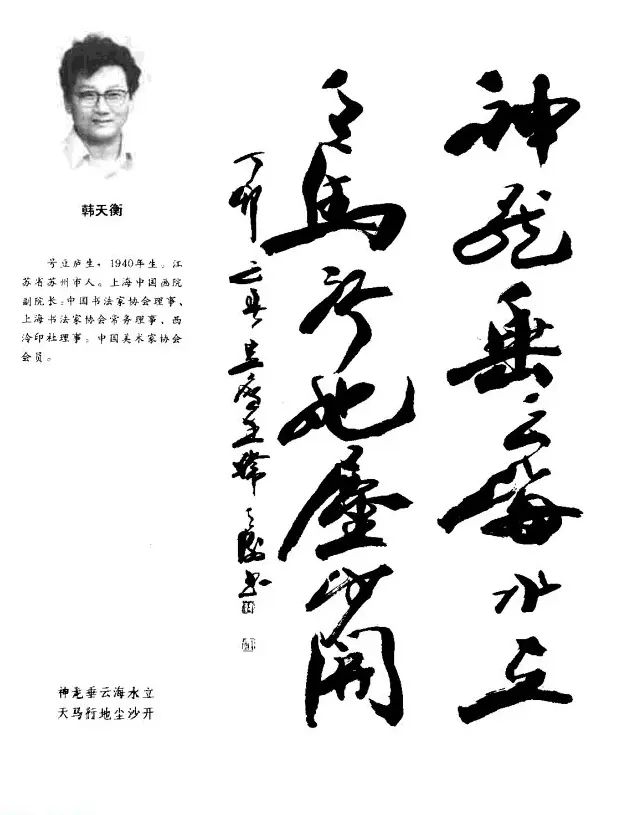 神龍垂云海水立
天馬行地塵沙開
丁卯之春豆廬生韓天衡書
韩天衡
号豆庐生,1940年生。江
苏省苏州市人。上海中国画院
副院长;中国书法家协会理事、
上海书法家协会常务理事、西
泠印社理事。中国美术家协会
会员。
神龙垂云海水立
天马行地尘沙开